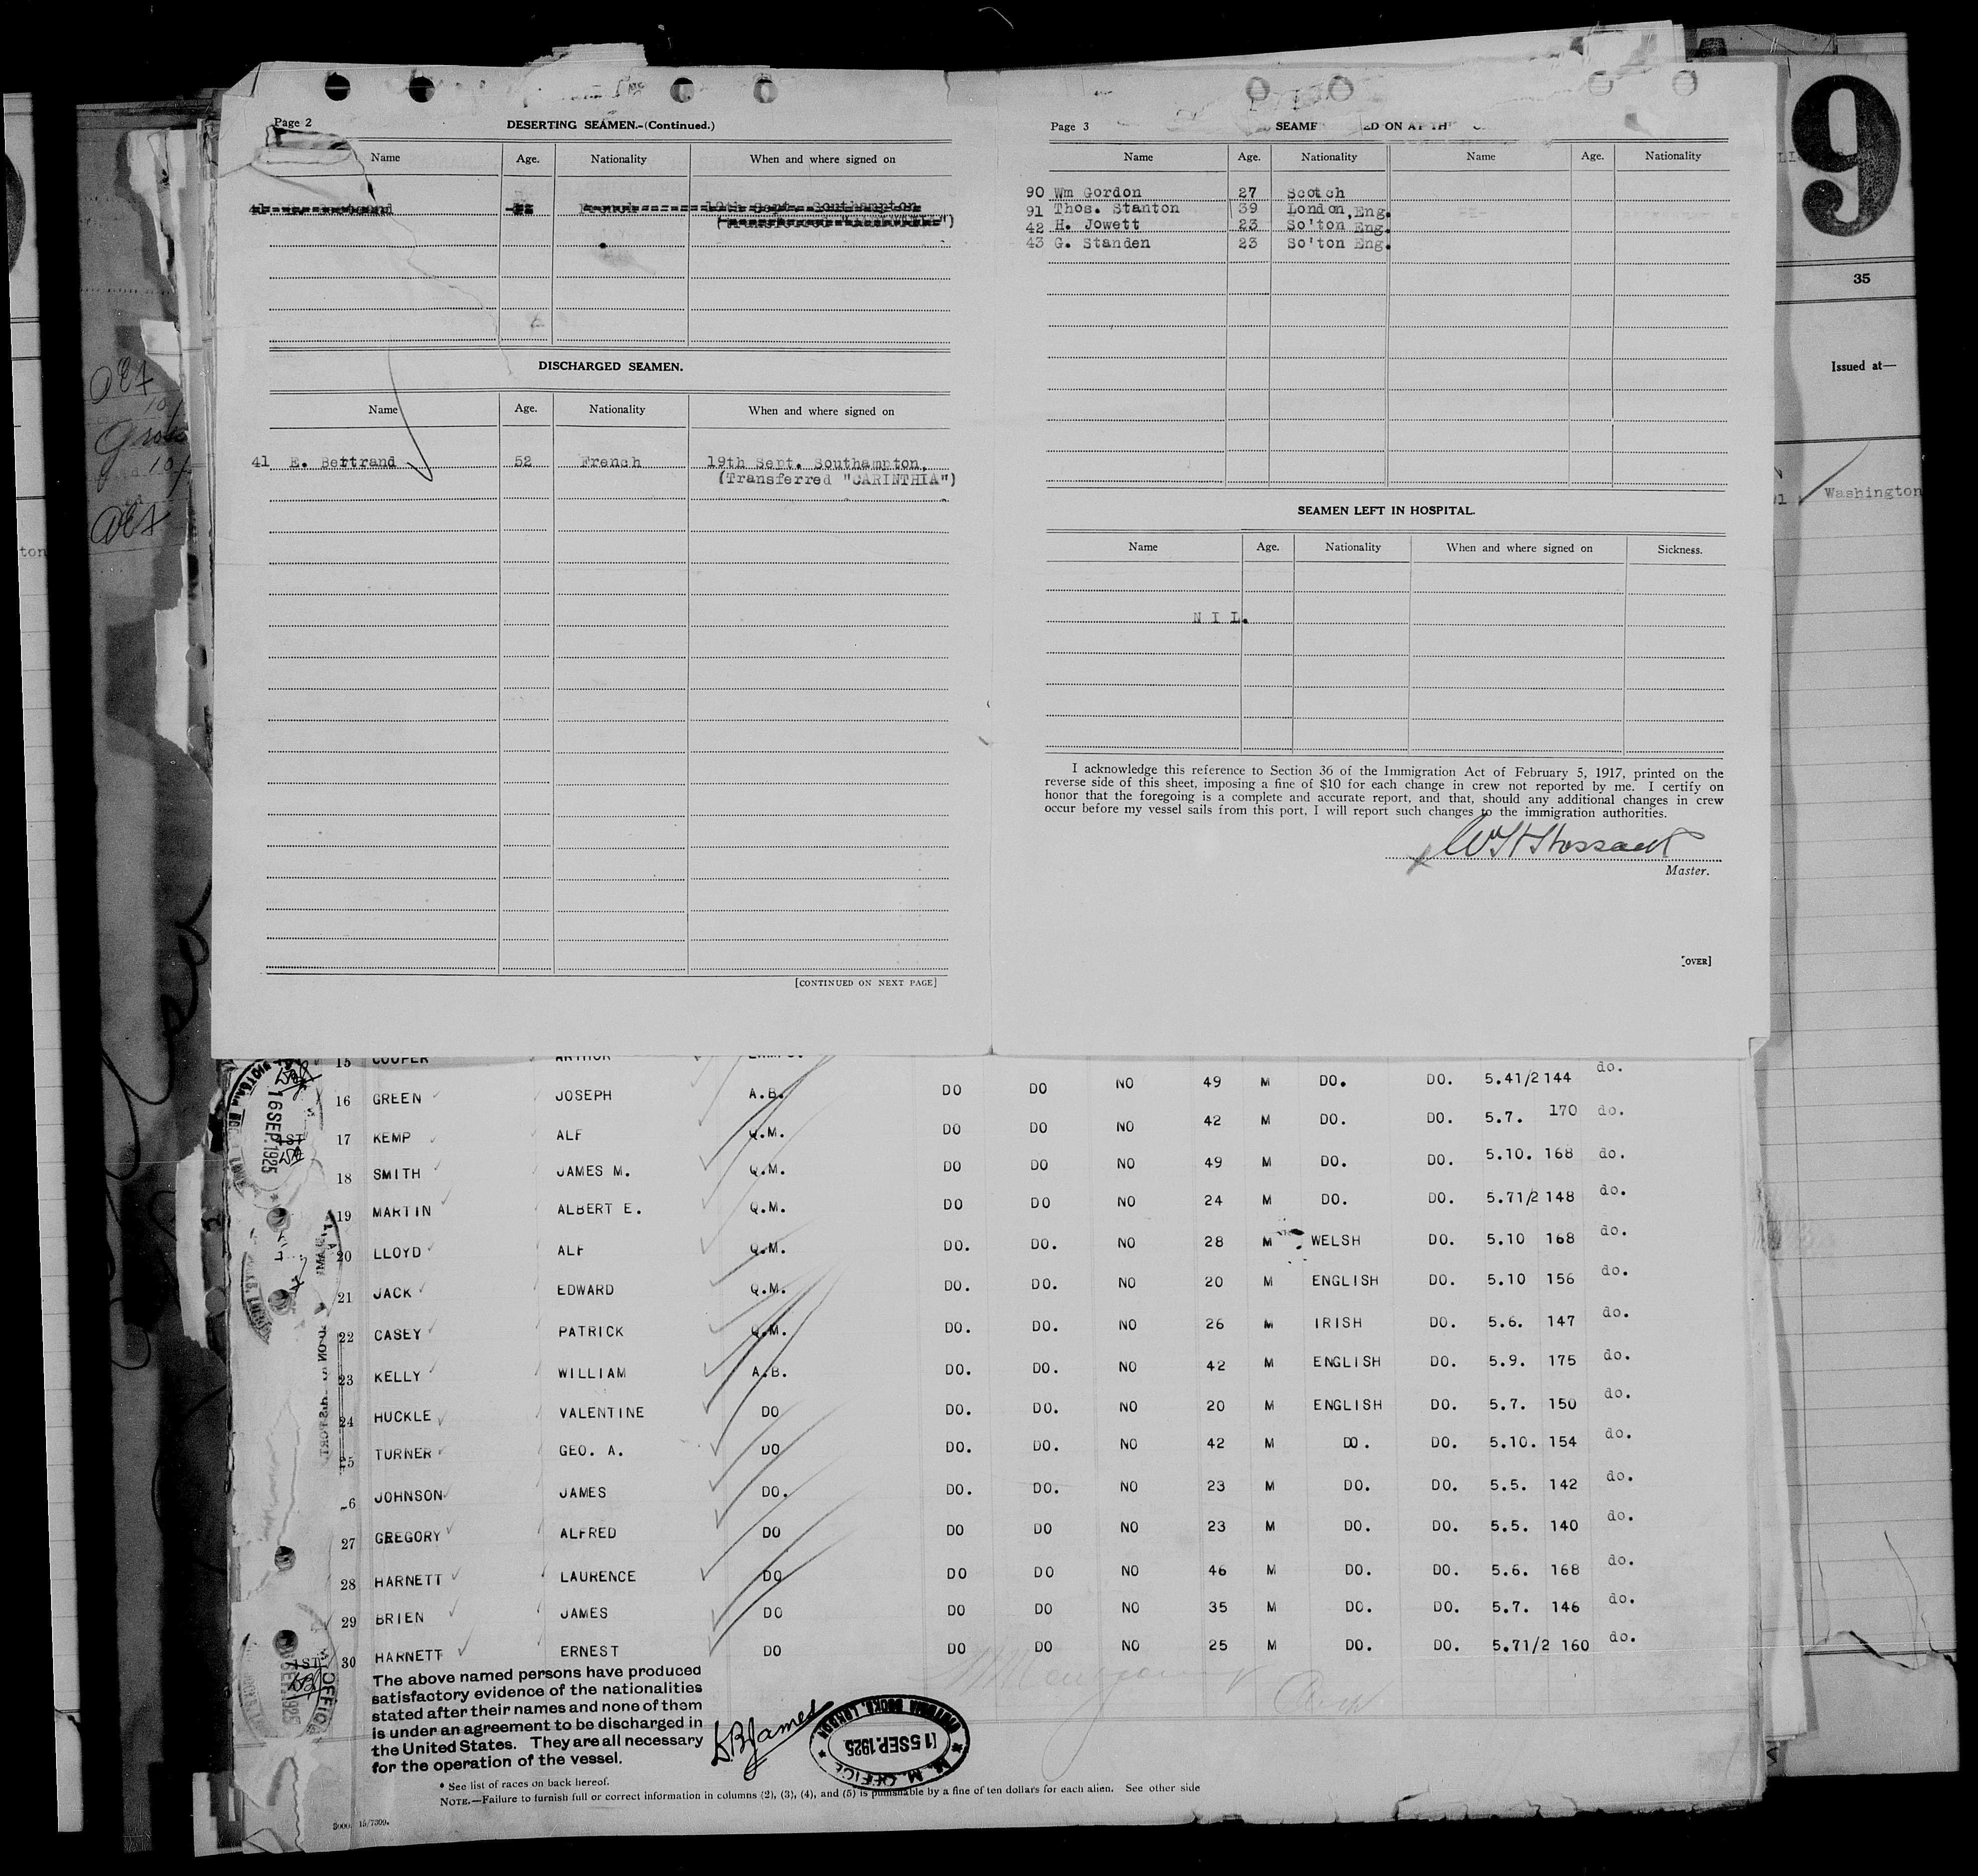 Page 2
DESERTING SEAMEN.-(Continued.)
Name Age. Nationality When and where signed on
DISCHARGED SEAMEN.
Name Age. Nationality When and where signed on
41 E. Bertrand 52 French 19th Sept. Southampton,
(Transferred "CARINTHIA")
[CONTINUED ON NEXT PAGE]
Page 3
Name Age. Nationality Name Age. Nationality
90 Wm Gordon 27 Scotch
91 Thos. Stanton 39 London, Eng.
42 H. Jowett 23 So'ton Eng.
43 G. Standen 23 So'ton Eng.
SEAMEN LEFT IN HOSPITAL.
Name Age. Nationality When and where signed on Sickness.
N I L.
I acknowledge this reference to Section 36 of the Immigration Act of February 5, 1917, printed on the
reverse side of this sheet, imposing a fine of $10 for each change in crew not reported by me. I certify on
honor that the foregoing is a complete and accurate report, and that, should any additional changes in crew
occur before my vessel sails from this port, I will report such changes to the immigration authorities.
Master.
[OVER]
9
35
Issued at—
Washington
15 COOPER ARTHUR
16 GREEN JOSEPH A.B. DO DO NO 49 M DO. DO. 5.41/2 144 do.
17 KEMP ALF Q.M. DO DO NO 42 M DO. DO. 5.7. 170 do.
18 SMITH JAMES M. Q.M. DO DO NO 49 M DO. DO. 5.10. 168 do.
19 MARTIN ALBERT E. Q.M. DO DO NO 24 M DO. DO. 5.71/2 148 do.
20 LLOYD ALF Q.M. DO. DO. NO 28 M WELSH DO. 5.10 168 do.
21 JACK EDWARD Q.M. DO. DO. NO 20 M ENGLISH DO. 5.10 156 do.
22 CASEY PATRICK Q.M. DO. DO. NO 26 M IRISH DO. 5.6. 147 do.
23 KELLY WILLIAM A.B. DO. DO. NO 42 M ENGLISH DO. 5.9. 175 do.
24 HUCKLE VALENTINE DO DO. DO. NO 20 M ENGLISH DO. 5.7. 150 do.
25 TURNER GEO. A. DO DO. DO. NO 42 M DO. DO. 5.10. 154 do.
6 JOHNSON JAMES DO. DO. DO. NO 23 M DO. DO. 5.5. 142 do.
27 GREGORY ALFRED DO DO DO NO 23 M DO. DO. 5.5. 140 do.
28 HARNETT LAURENCE DO DO DO NO 46 M DO. DO. 5.6. 168 do.
29 BRIEN JAMES DO DO DO NO 35 M DO. DO. 5.7. 146 do.
30 HARNETT ERNEST DO DO DO NO 25 M DO. DO. 5.71/2 160 do.
The above named persons have produced
satisfactory evidence of the nationalities
stated after their names and none of them
is under an agreement to be discharged in
the United States. They are all necessary
for the operation of the vessel.
M. M. OFFICE
15 SEP. 1925
VICTORIA DOCKS, LONDON
16 SEP. 1925
* See list of races on back hereof.
NOTE.—Failure to furnish full or correct information in columns (2), (3), (4), and (5) is punishable by a fine of ten dollars for each alien. See other side